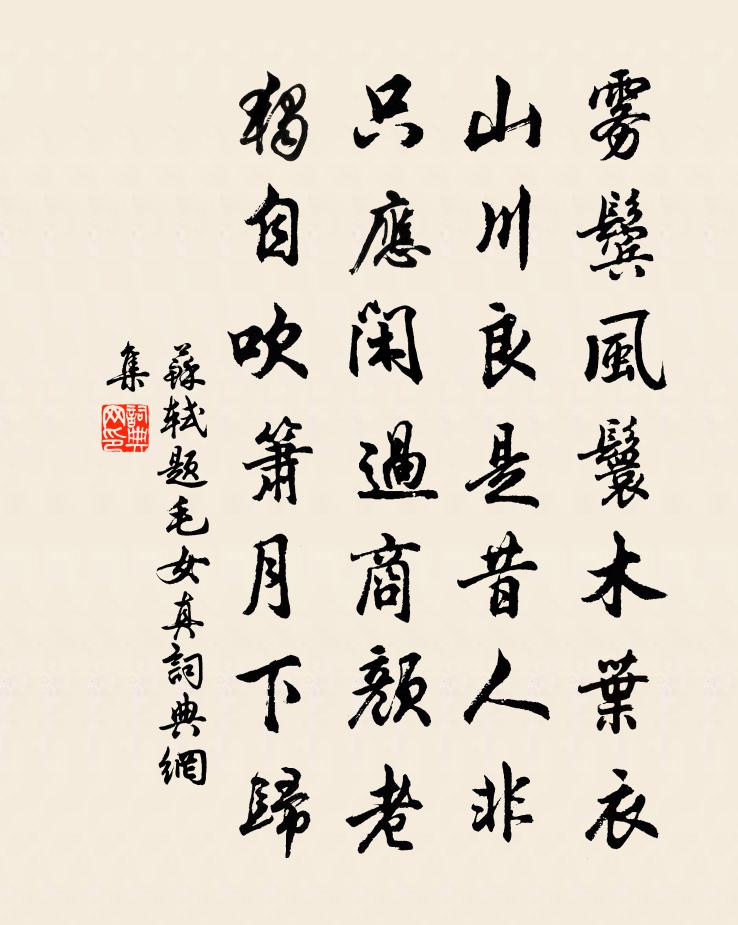 霧鬢風鬟木葉衣
山川良是昔人非
只應閑過商顏老
獨自吹簫月下歸
蘇軾題毛女真詞典網
集
詞典
网印